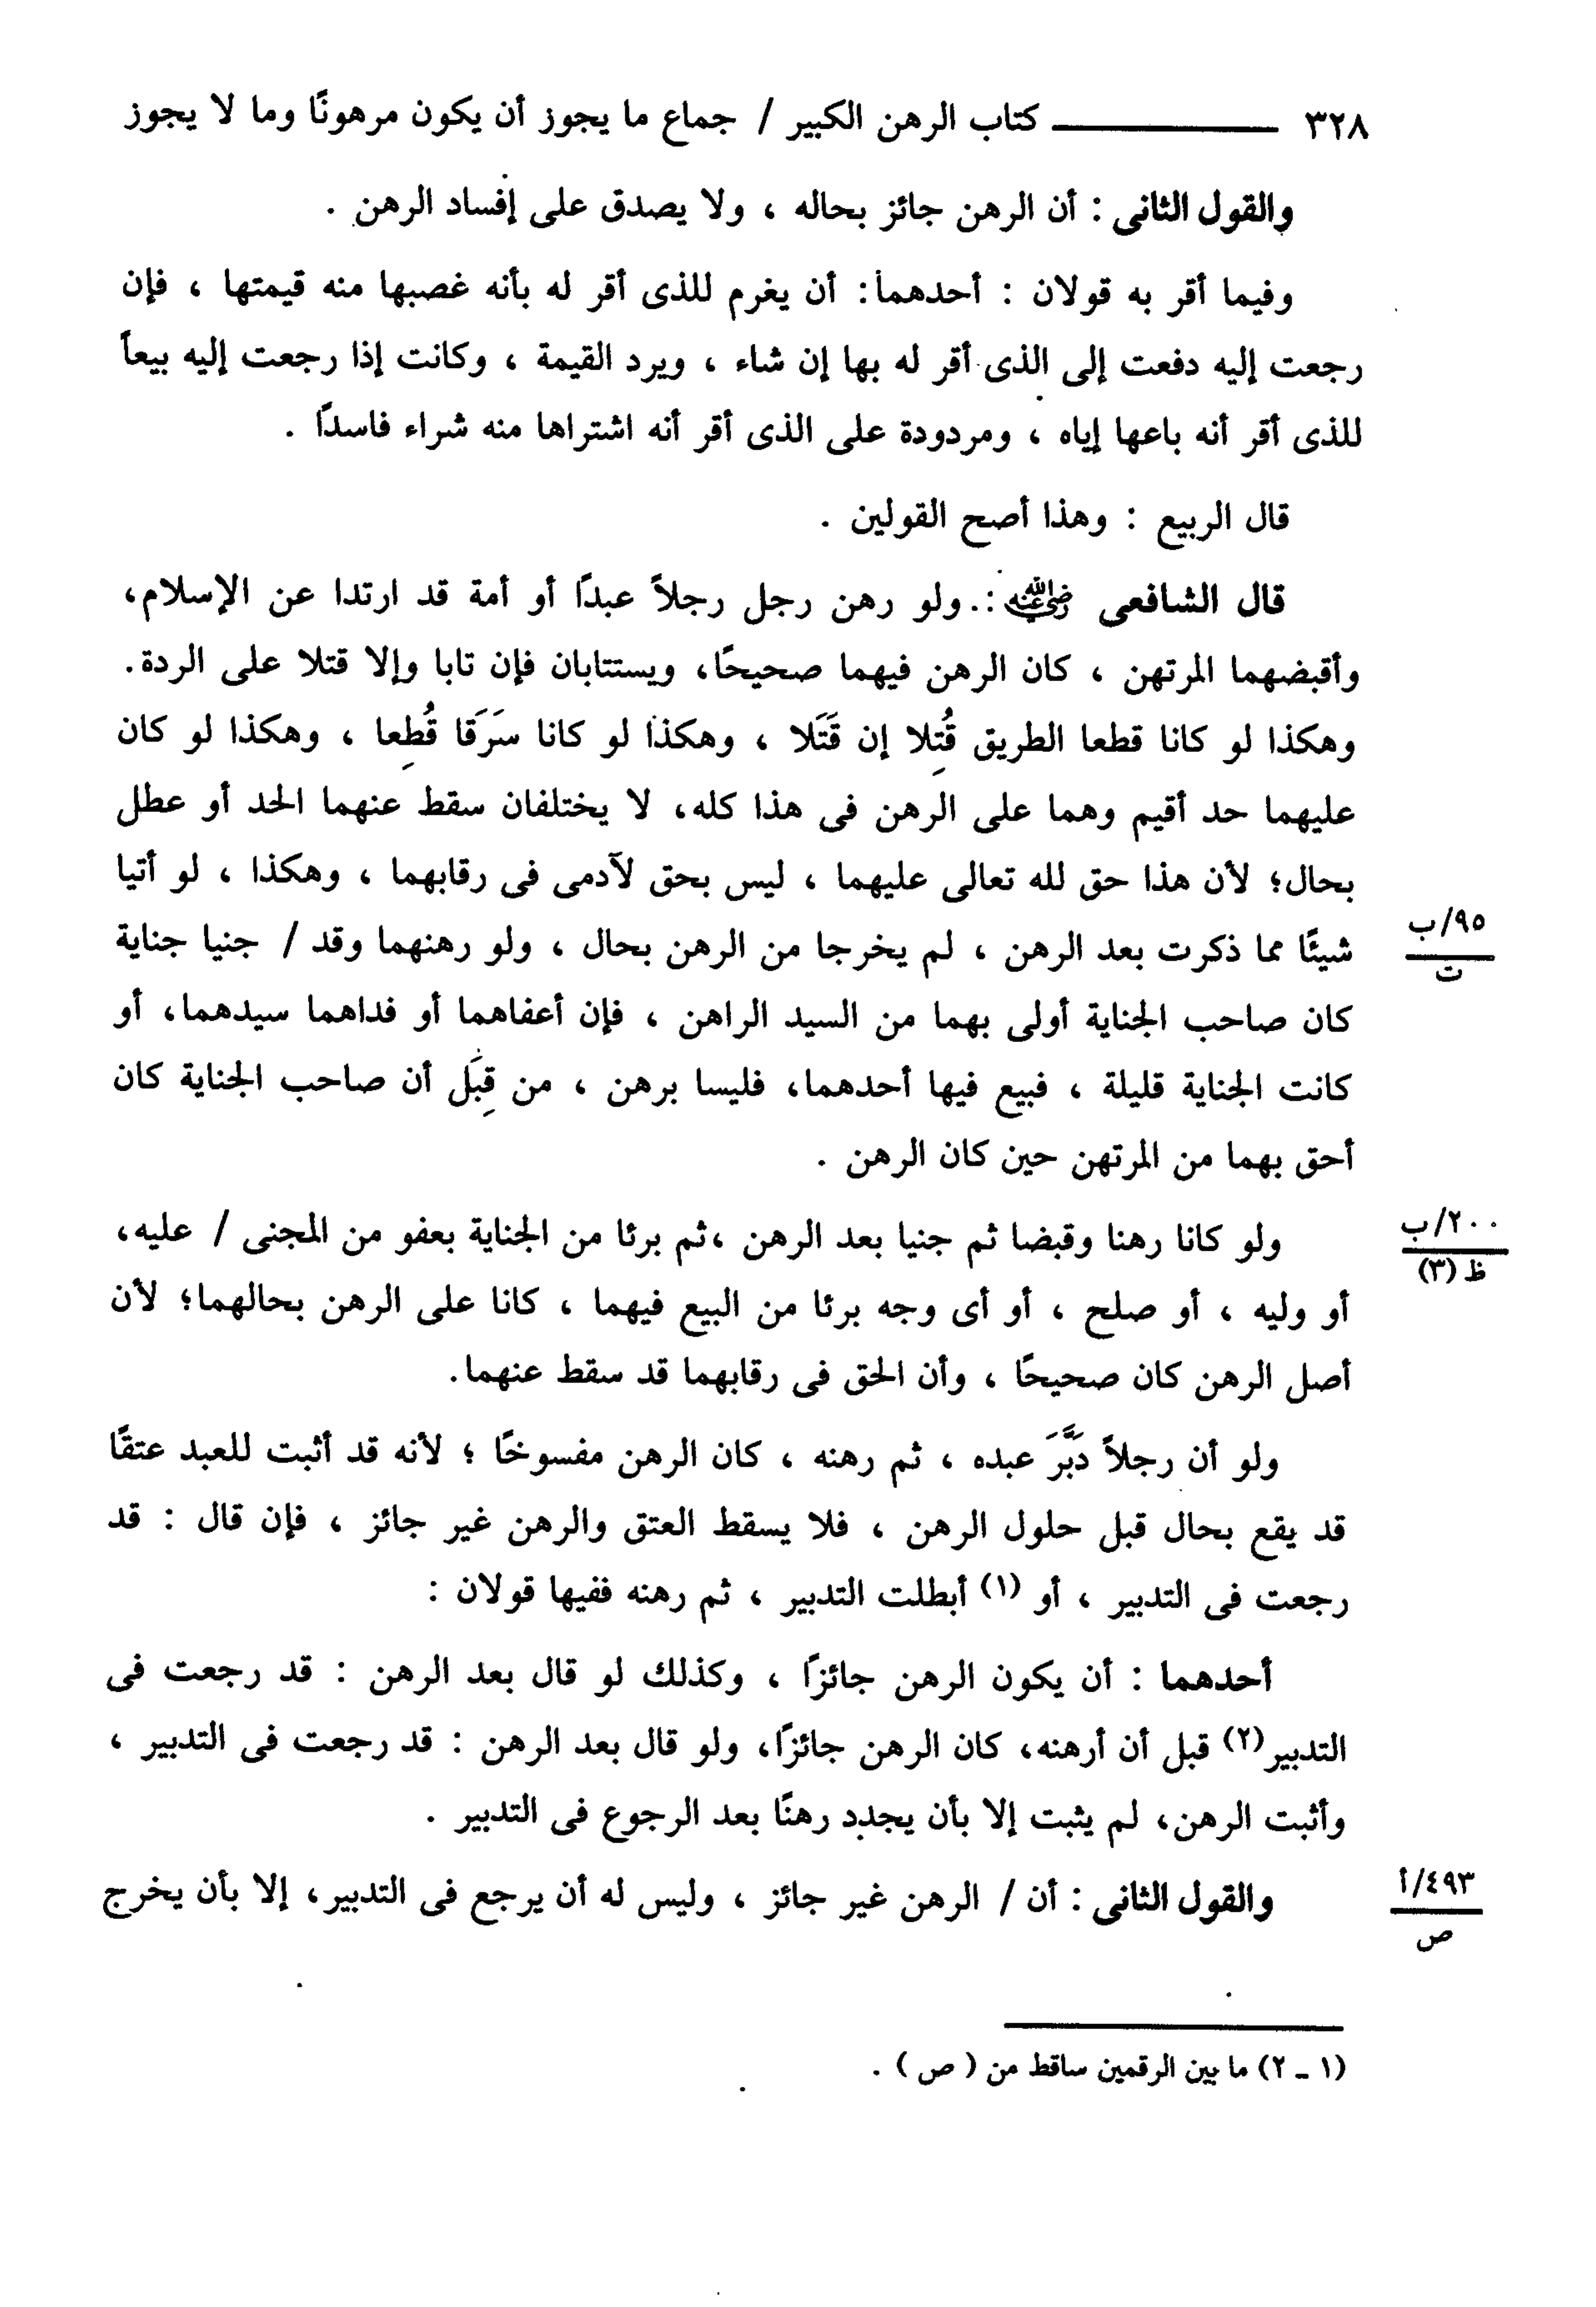 ٣٢٨ ـــــــــــــ كتاب الرهن الكبير / جماع ما يجوز أن يكون مرهونًا وما لا يجوز
والقول الثانى : أن الرهن جائز بحاله ، ولا يصدق على إفساد الرهن .
وفيما أقر به قولان : أحدهما: أن يغرم للذى أقر له بأنه غصبها منه قيمتها ، فإن
رجعت إليه دفعت إلى الذى أقر له بها إن شاء ، ويرد القيمة ، وكانت إذا رجعت إليه بيعاً
للذى أقر أنه باعها إياه ، ومردودة على الذى أقر أنه اشتراها منه شراء فاسدًا .
قال الربيع : وهذا أصح القولين .
قال الشافعى رضي الله عنه : ولو رهن رجل رجلاً عبدًا أو أمة قد ارتدا عن الإسلام،
وأقبضهما المرتهن ، كان الرهن فيهما صحيحًا، ويستتابان فإن تابا وإلا قتلا على الردة.
وهكذا لو كانا قطعا الطريق قُتِلا إن قَتَلا ، وهكذا لو كانا سَرَقا قُطِعا ، وهكذا لو كان
عليهما حد أقيم وهما على الرهن فى هذا كله، لا يختلفان سقط عنهما الحد أو عطل
بحال؛ لأن هذا حق لله تعالى عليهما ، ليس بحق لآدمى فى رقابهما ، وهكذا ، لو أتيا
شيئًا مما ذكرت بعد الرهن ، لم يخرجا من الرهن بحال ، ولو رهنهما وقد / جنيا جناية
٩٥/ب
ت
كان صاحب الجناية أولى بهما من السيد الراهن ، فإن أعفاهما أو فداهما سيدهما، أو
كانت الجناية قليلة ، فبيع فيها أحدهما، فليسا برهن ، من قِبَل أن صاحب الجناية كان
أحق بهما من المرتهن حين كان الرهن .
ولو كانا رهنا وقبضا ثم جنيا بعد الرهن ،ثم برئا من الجناية بعفو من المجنى / عليه،
٢٠٠/ب
ظ (٣)
أو وليه ، أو صلح ، أو أى وجه برئا من البيع فيهما ، كانا على الرهن بحالهما؛ لأن
أصل الرهن كان صحيحًا ، وأن الحق فى رقابهما قد سقط عنهما.
ولو أن رجلاً دَبَّرَ عبده ، ثم رهنه ، كان الرهن مفسوخًا ؛ لأنه قد أثبت للعبد عتقًا
قد يقع بحال قبل حلول الرهن ، فلا يسقط العتق والرهن غير جائز ، فإن قال : قد
رجعت فى التدبير ، أو (١) أبطلت التدبير ، ثم رهنه ففيها قولان :
أحدهما : أن يكون الرهن جائزًا ، وكذلك لو قال بعد الرهن : قد رجعت فى
التدبير(٢) قبل أن أرهنه، كان الرهن جائزًا، ولو قال بعد الرهن : قد رجعت فى التدبير ،
وأثبت الرهن، لم يثبت إلا بأن يجدد رهنًا بعد الرجوع فى التدبير .
والقول الثانى : أن / الرهن غير جائز ، وليس له أن يرجع فى التدبير، إلا بأن يخرج
٤٩٣/أ
ص
(١ ـ ٢) ما بين الرقمين ساقط من ( ص ) .